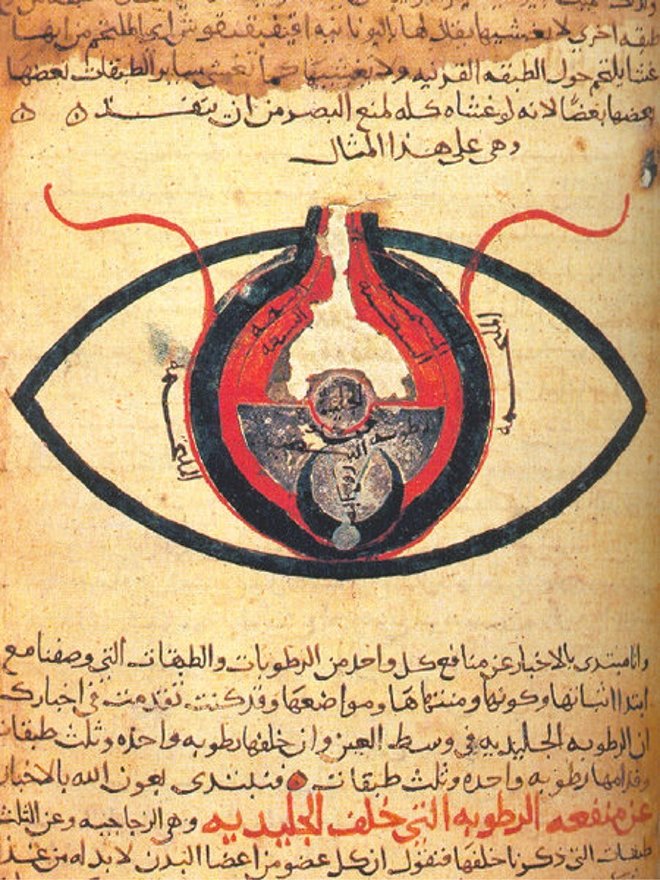 طبقه اخرى لا يغشيها يقال لها باليونانيه اى الملتحم من انها
غشا يلتحم حول الطبقه القرنيه ولا يغشيها كما تغشى ساير الطبقات بعضها
بعضها بعضا لانه لو غشاه كله لمنع البصر من ان ينفذ
وهى على هذا المثال
الملتحمه
الملتحمه
الجليديه
وانا مبتدى بالاخبار عن منافع كل واحد من الرطوبات والطبقات التى وصفنا مع
ابتدا اثباتها وكونها ومنتهاها ومواضعها وقد كنت تقدمت فى اخبارك
ان الرطوبه الجليديه فى وسط العين وان خلفها رطوبه واحده وثلث طبقات
وقدامها رطوبه واحده وثلث طبقات فنبتدى بعون الله بالاخبار
عن منفعه الرطوبه التى خلف الجليديه وهى الزجاجيه وعن الثلث
طبقات التى ذكرنا خلفها فنقول ان كل عضو من اعضا البدن لا بد له من غذا